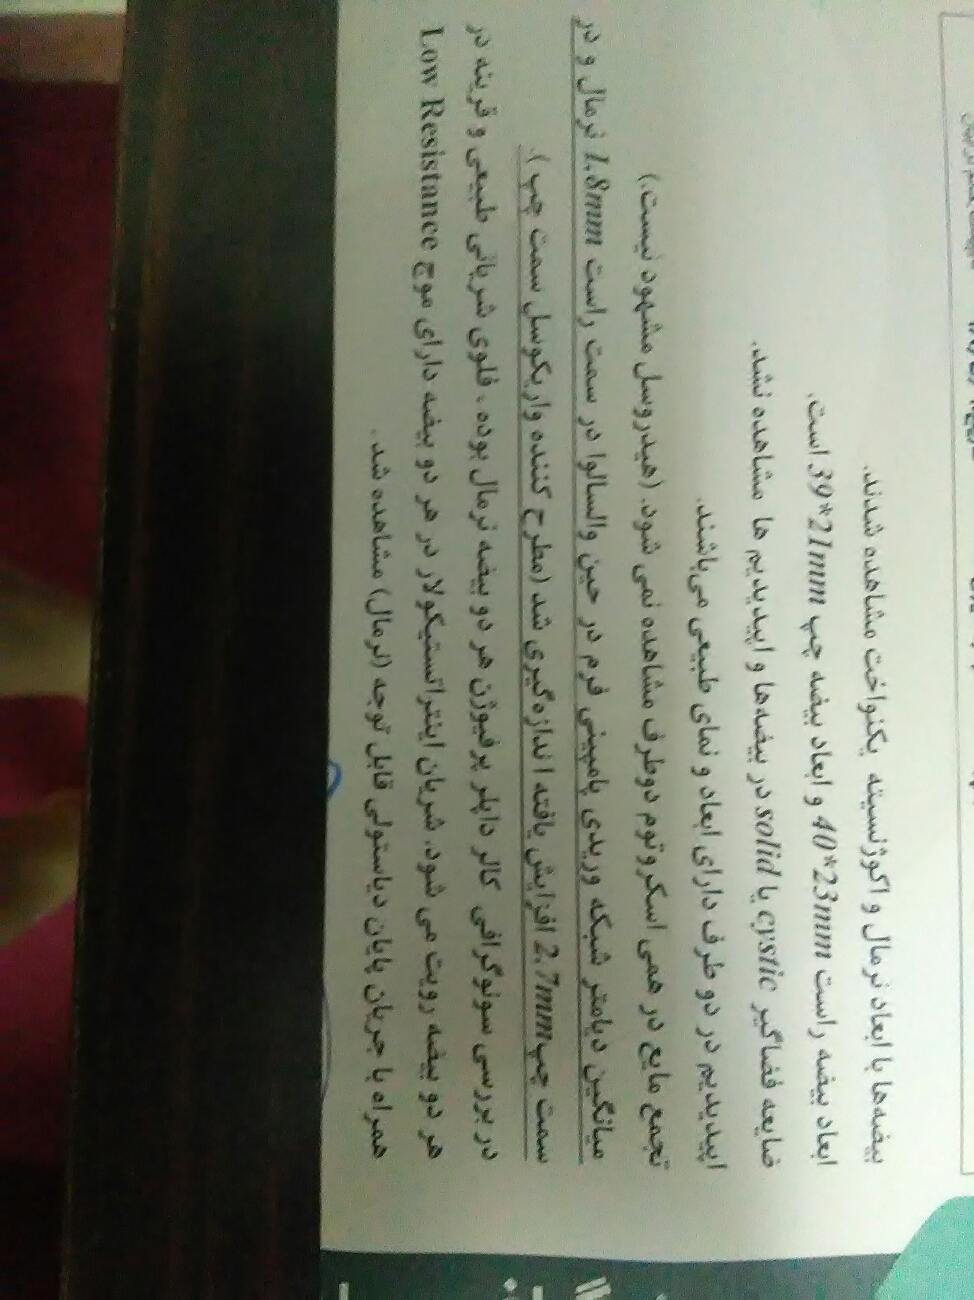 بیضه‌ها با ابعاد نرمال و اکوژنسیته یکنواخت مشاهده شدند.
ابعاد بیضه راست 40*23mm و ابعاد بیضه چپ 39*21mm است.
ضایعه فضاگیر cystic یا solid در بیضه‌ها و اپیدیدیم ها مشاهده نشد.
اپیدیدیم در دو طرف دارای ابعاد و نمای طبیعی می‌باشند.
تجمع مایع در همی اسکروتوم دوطرف مشاهده نمی شود. (هیدروسل مشهود نیست.)
میانگین دیامتر شبکه وریدی پامپینی فرم در حین والسالوا در سمت راست 1.8mm نرمال و در
سمت چپ 2.7mm افزایش یافته اندازه‌گیری شد (مطرح کننده واریکوسل سمت چپ).
در بررسی سونوگرافی کالر داپلر پرفیوژن هر دو بیضه نرمال بوده، فلوی شریانی طبیعی و قرینه در
هر دو بیضه رویت می شود. شریان اینتراتستیکولار در هر دو بیضه دارای موج Low Resistance
همراه با جریان پایان دیاستولی قابل توجه (نرمال) مشاهده شد.